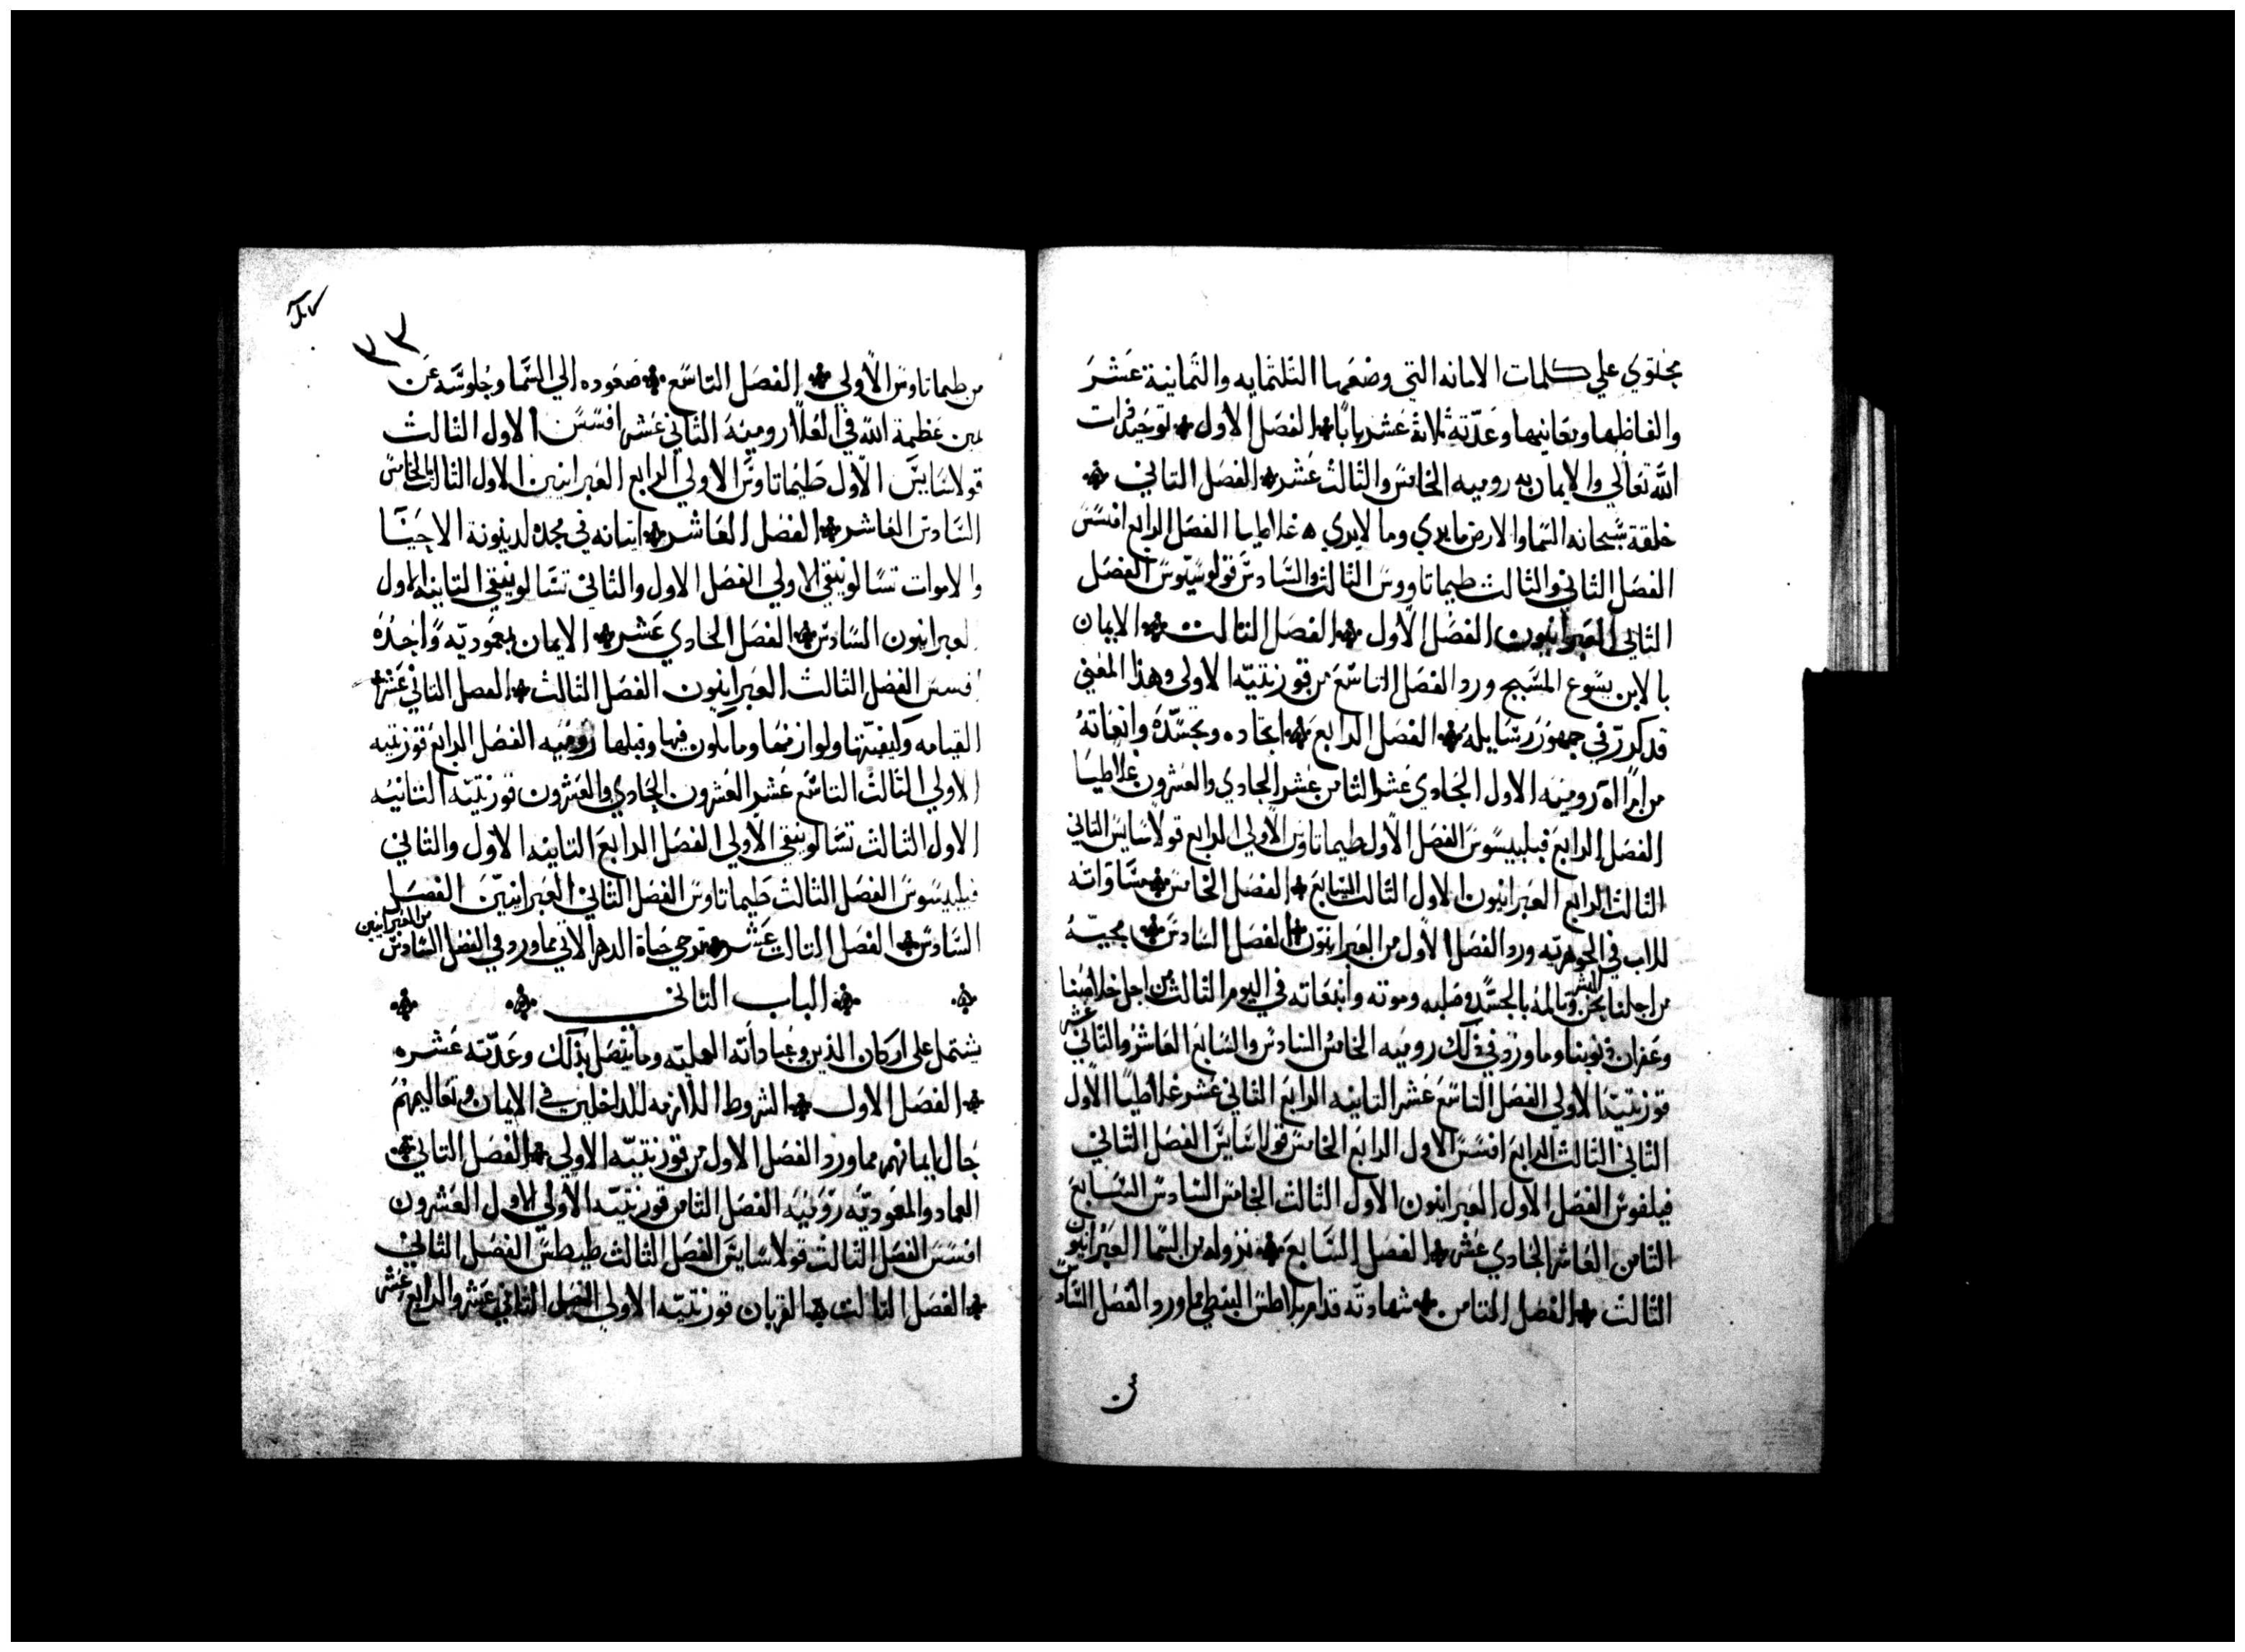 محتوي علي كلمات الامانه التي وضعها التلتمايه والتمانية عشر
والفاظها ومعانيها وعدّته ثلاثة عشر بابًا الفصل الاول توحيد ذات
الله تعالي والايمان به روميه الخامس والثالث عشر الفصل التاني
خلقة سبحانه السما والارض ما يري وما لا يري غلاطيا الفصل الرابع افسس
الفصل الثاني والثالت طيماتاووس الثالث والسادس قولوسيوس الفصل
الثاني العبرانيون الفصل الاول الفصل التالت الايمان
بالابن يسوع المسيح ورد الفصل التاسع من قورنتيّه الاولي وهذا المعني
قد كررّ في جمهور رسايله الفصل الرابع اتحاده وتجسّده وانبعاثه
من امراة روميه الاول الحادي عشر الثامن عشر الحادي والعشرون غلاطيا
الفصل الرابع فيلبيسوس الفصل الاول طيماتاوس الاولي الرابع قولاسايس التاني
الثالث الرابع العبرانيون الاول الثالث السابع الفصل الخامس مساواته
للاب في الجوهريّه ورد الفصل الاول من العبرانيّون الفصل السادس مجيّه
من اجلنا نحن البشر وتالمه بالجسد وصلبه وموته وانبعاته في اليوم الثالث من اجل خلاصنا
وغفران ذنوبنا وما ورد في ذلك روميه الخامس السادس والسابع العاشر والثاني عشر
قورنتيّه الاولي الفصل التاسع عشر التانيه الرابع الثاني عشر غلاطيا الاول
الثاني الثالث الرابع افسس الاول الرابع الخامس قولاسايس الفصل الثاني
فيلفوس الفصل الاول العبرانيون الاول الثالث الخامس السادس السابع
الثامن العاشر الحادي عشر الفصل السابع نزوله من السما العبرانيون
الثالث الفصل الثامن شهادته قدام بيلاطس البنطي مما ورد الفصل السادس
من
٣٣
من طيماتاوس الاولي الفصل التاسع صعوده الي السما وجلوسه عن
يمين عظمة الله في العلا روميه الثاني عشر افسس الاول الثالث
قولاسايس الاول طيماتاوس الاولي الرابع العبرانيين الاول الثالث الخامس
السادس العاشر الفصل العاشر اتيانه في مجده لدينونة الاحيا
والاموات تسالونيقي الاولي الفصل الاول والثاني تسالونيقي التانيه الاول
العبرانيون السادس الفصل الحادي عشر الايمان بمعموديّه واحده
افسس الفصل الثالث العبرانيون الفصل الثالث الفصل الثاني عشر
القيامه وكيفيّتها ولوازمها وما يكون فيها وقبلها روميه الفصل الرابع قورنتيه
الاولي الثالث التاسع عشر العشرون الحادي والعشرون قورنتيّه التانيه
الاول الثالث تسالونيقي الاولي الفصل الرابع التانيه الاول والثاني
فيلبيسوس الفصل الثالث طيماتاوس الفصل الثاني العبرانيّين الفصل
السادس الفصل التالت عشر ترجي حياة الدهر الاتي مما ورد في الفصل السادس من العبرانيين
الباب التاني
يشتمل علي اركان الدين وعباداته العمليّه وما يتصل بذلك وعدّته عشره
الفصل الاول الشروط اللازمه للداخلين في الايمان وتعاليمهم
حال ايمانهم مما ورد الفصل الاول من قورنتيّه الاولي الفصل التاني
العماد والمعموديّه روميه الفصل الثامن قورنتيّه الاولي الاول العشرون
افسس الفصل الثالث قولاسايس الفصل الثالث طيطس الفصل الثاني
الفصل التالت القربان قورنتيّه الاولي الفصل الثاني عشر والرابع عشر